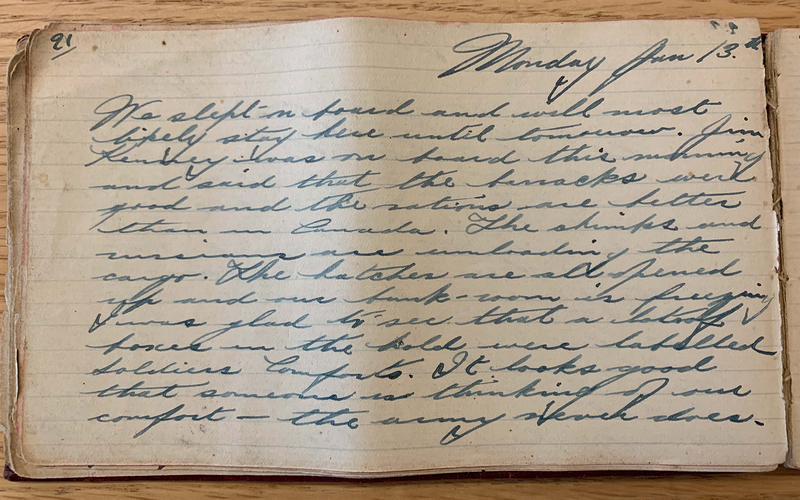 91
Monday Jan 13th
We slept on board and will most
likely stay here until tomorrow. Jim
was on board this morning
and said that the barracks were
good and the rations are better
than in Canada. The chinks and
russians are unloading the
cargo. The hatches are all opened
up and our bunk-room is freezing
I was glad to see that a lot of
boxes in the hold were labelled
Soldiers Comforts. It looks good
that someone is thinking of our
comfort — the army never does.